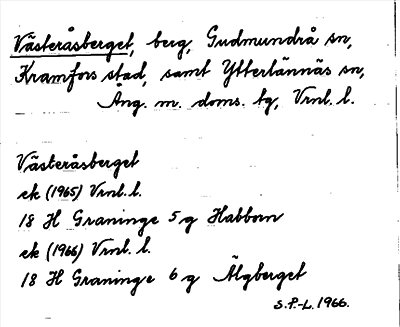 Västeråsberget, berg, Gudmundrå sn,
Kramfors stad, samt Ytterlännäs sn,
Ång. m. doms. tg, Vrnl. l.
Västeråsberget
ek (1965) Vrnl. l.
18 H Graninge 5 g Habborn
ek (1966) Vrnl. l.
18 H Graninge 6 g Älgberget
S.P.-L. 1966.